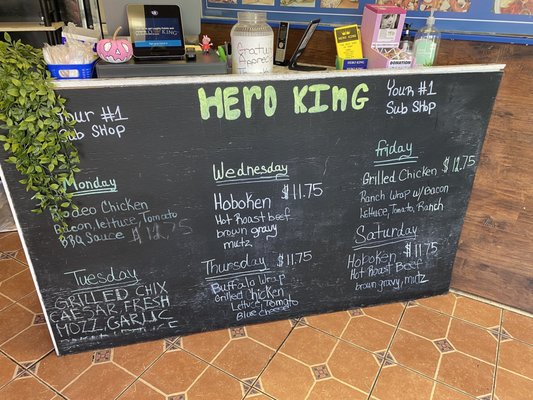 HERO KING
Gratuity
DONATION
Your #1
Sub Shop
HERO KING
Your #1
Sub Shop
Monday
Rodeo Chicken
Bacon, lettuce, Tomato
BBQ Sauce
Tuesday
GRILLED CHIX
CAESAR, FRESH
MOZZ, GARLIC
Wednesday
Hoboken $11.75
Hot Roast beef
brown gravy
mutz
Thursday $11.75
Buffalo Wrap
Grilled Chicken
Lettuce, Tomato
Blue Cheese
Friday
Grilled Chicken $12.75
Ranch Wrap w/Bacon
Lettuce, Tomato, Ranch
Saturday
Hoboken $11.75
Hot Roast Beef
brown gravy, mutz